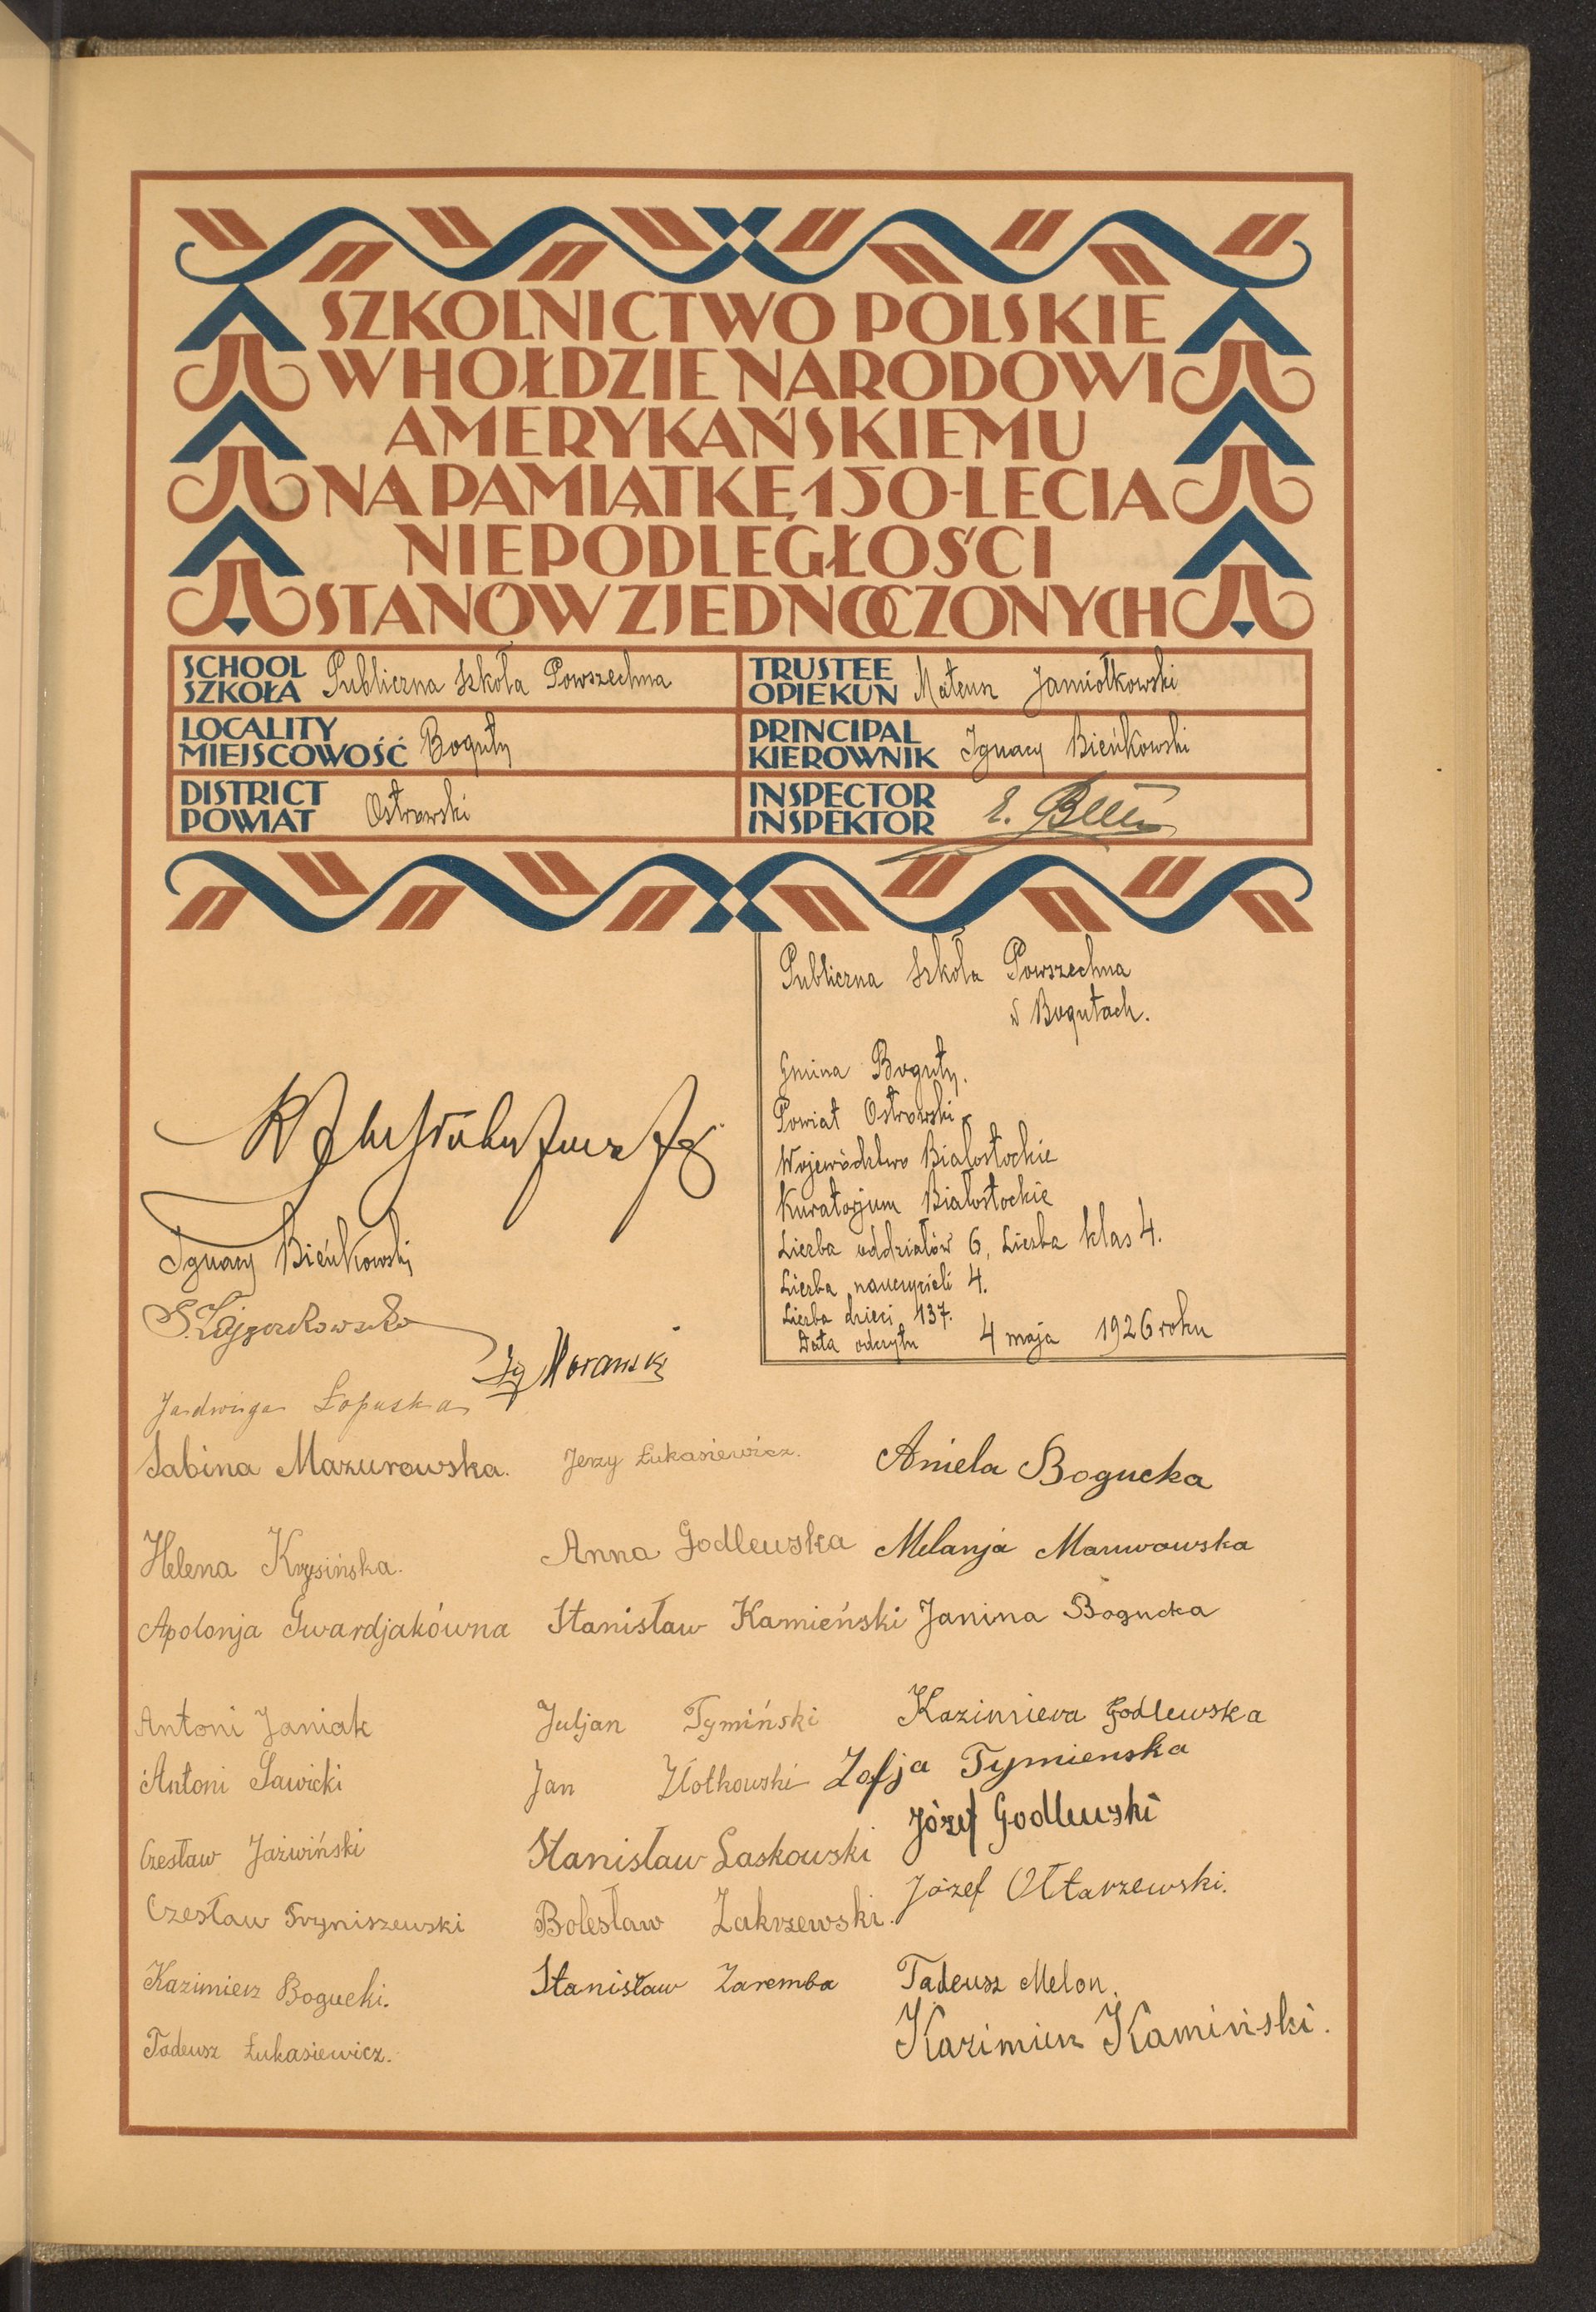 SZKOLNICTWO POLSKIE
W HOŁDZIE NARODOWI
AMERYKAŃSKIEMU
NA PAMIĄTKĘ 150-LECIA
NIEPODLEGŁOŚCI
STANÓW ZJEDNOCZONYCH
SCHOOL
SZKOŁA Publiczna Szkoła Powszechna
TRUSTEE
OPIEKUN Mateusz Jamiołkowski
LOCALITY
MIEJSCOWOŚĆ Boguty
PRINCIPAL
KIEROWNIK Ignacy Bieńkowski
DISTRICT
POWIAT Ostrowski
INSPECTOR
INSPEKTOR E.
Publiczna Szkoła Powszechna
w Bogutach.
Gmina Boguty.
Powiat Ostrowski
Województwo Białostockie
Kuratorjum Białostockie
Liczba oddziałów 6, Liczba klas 4.
Liczba nauczycieli 4.
Liczba dzieci 137.
Data odczytu 4 maja 1926 roku
Ignacy Bieńkowski
S. Zajączkowska
Morawski
Jadwiga Łopuska
Sabina Mazurowska.
Jerzy Łukasiewicz.
Aniela Bogucka
Helena Krysińska.
Anna Godlewska
Melanja
Apolonja Gwardjakówna
Stanisław Kamieński
Janina Bogucka
Antoni Janiak
Juljan Tymiński
Kazimiera Godlewska
Antoni Sawicki
Jan Złotkowski
Zofja Tymienska
Józef Godlewski
Czesław Jaźwiński
Stanisław Laskowski
Józef Ołtarzewski.
Czesław Tryniszewski
Bolesław Zakrzewski.
Kazimierz Bogucki.
Stanisław Zaremba
Tadeusz Melon.
Tadeusz Łukasiewicz.
Kazimierz Kamiński.